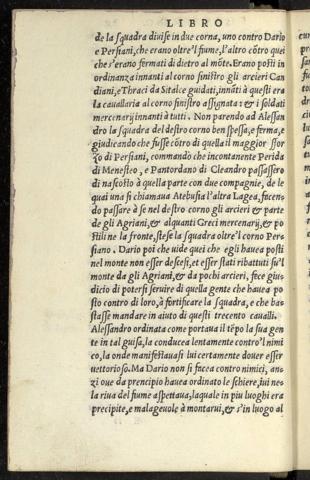 LIBRO
de la squadra diuise in due corna, uno contro Dario
e Persiani, che erano oltre'l fiume, l'altro cõtro quei
che s'erano fermati di dietro al mõte. Erano posti in
ordinanza innanti al corno sinistro gli arcieri Can
diani, e Thraci da Sitalce guidati, innãti à questi era
la cauallaria al corno sinistro assignata: & i soldati
mercenarij innanti à tutti. Non parendo ad Alessan
dro la squadra del destro corno ben spessa, e ferma, e
giudicando che fusse cõtro di quella il maggior sfor
zo di Persiani, commandò che incontanente Perida
di Menesteo, e Pantordano di Cleandro passassero
di nascosto à quella parte con due compagnie, de le
quai una si chiamaua Atebusia l'altra Lagea, facen-
do passare à se nel destro corno gli arcieri & parte
de gli Agriani, & alquanti Greci mercenarij, & po
stili ne la fronte, stese la squadra oltre'l corno Per-
siano. Dario poi che uide quei che egli hauea posti
nel monte non esser descesi, et esser stati ributtati su'l
monte da gli Agriani, & da pochi arcieri, fece giu-
dicio di potersi seruire di quella gente che hauea po
sto contro di loro, à fortificare la squadra, e che ba-
stasse mandare in aiuto di questi trecento caualli.
Alessandro ordinata come portaua il tẽpo la sua gen
te in tal guisa, la conducea lentamente contro'l nimi
co, la onde manifestauasi lui certamente douer esser
uettorioso. Ma Dario non si facea contro nimici, an-
zi oue da prencipio hauea ordinato le schiere, iui ne
la riua del fiume aspettaua, laquale in piu luoghi era
precipite, e malageuole à montarui, & s'in luogo al